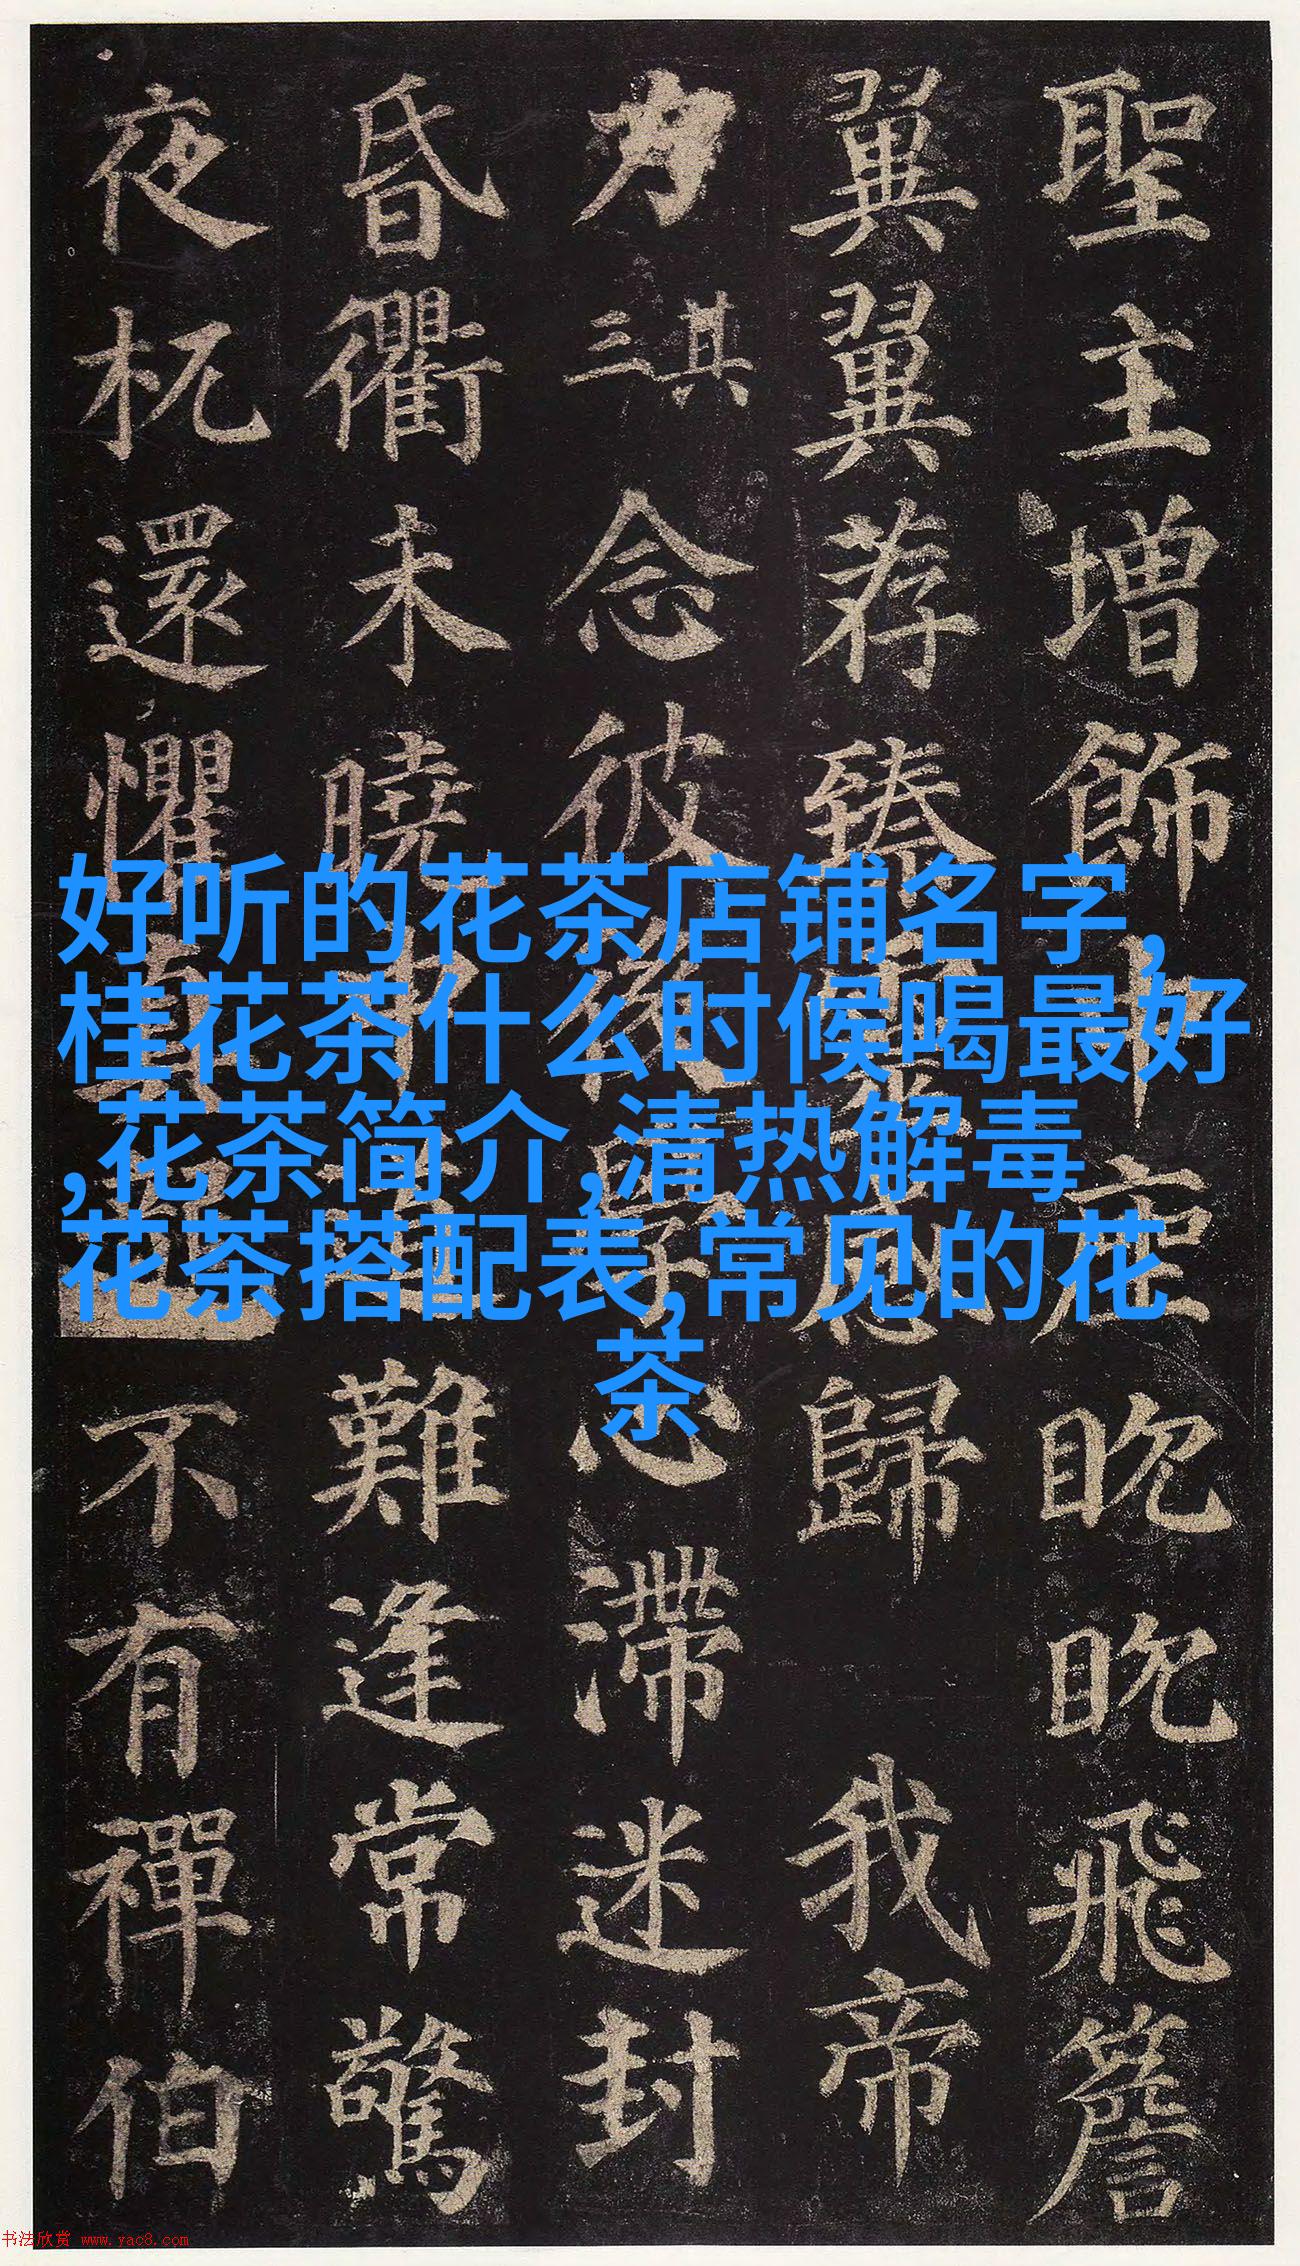 聖主增飾中座眈眈飛簷
翼翼荐臻靈感歸我帝
力
其三
念彼後學心滯迷封
昏衢未曉中道難逢常驚
夜杌還懼真龍不有禪伯
好听的花茶店铺名字,
桂花茶什么时候喝最好
,花茶简介,清热解毒
花茶搭配表,常见的花
茶
书法欣赏 www.yac8.com